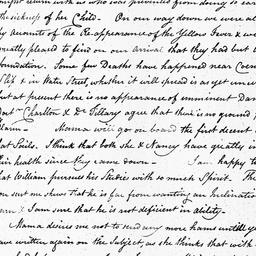 might return with us who was prevented from doing so earli
the sickness of her Child. On our way down we were al
by accounts of the Re-appearance of the Yellow Fever & we
greatly pleased to find on our arrival that they had but l
foundation. Some few Deaths have happened near Coen
Slip & in Water Street, whether it will spread is as yet unce
but at present there is no appearance of imminent Dan
Doctr. Charlton & Dr. Tillary agree that there is no ground
alarm — Mama will go on board the first decent
that Sails. I think that both she & Nancy have greatly i
their health since they came down — I am happy t
that William pursues his Studies with so much Spirit. The
you sent me shews that he is far from wanting an Inclinatio
learn & I am sure that he is not deficient in ability.
Mama desires me not to send any more hams until yo
have written again on the Subject, as she thinks that with